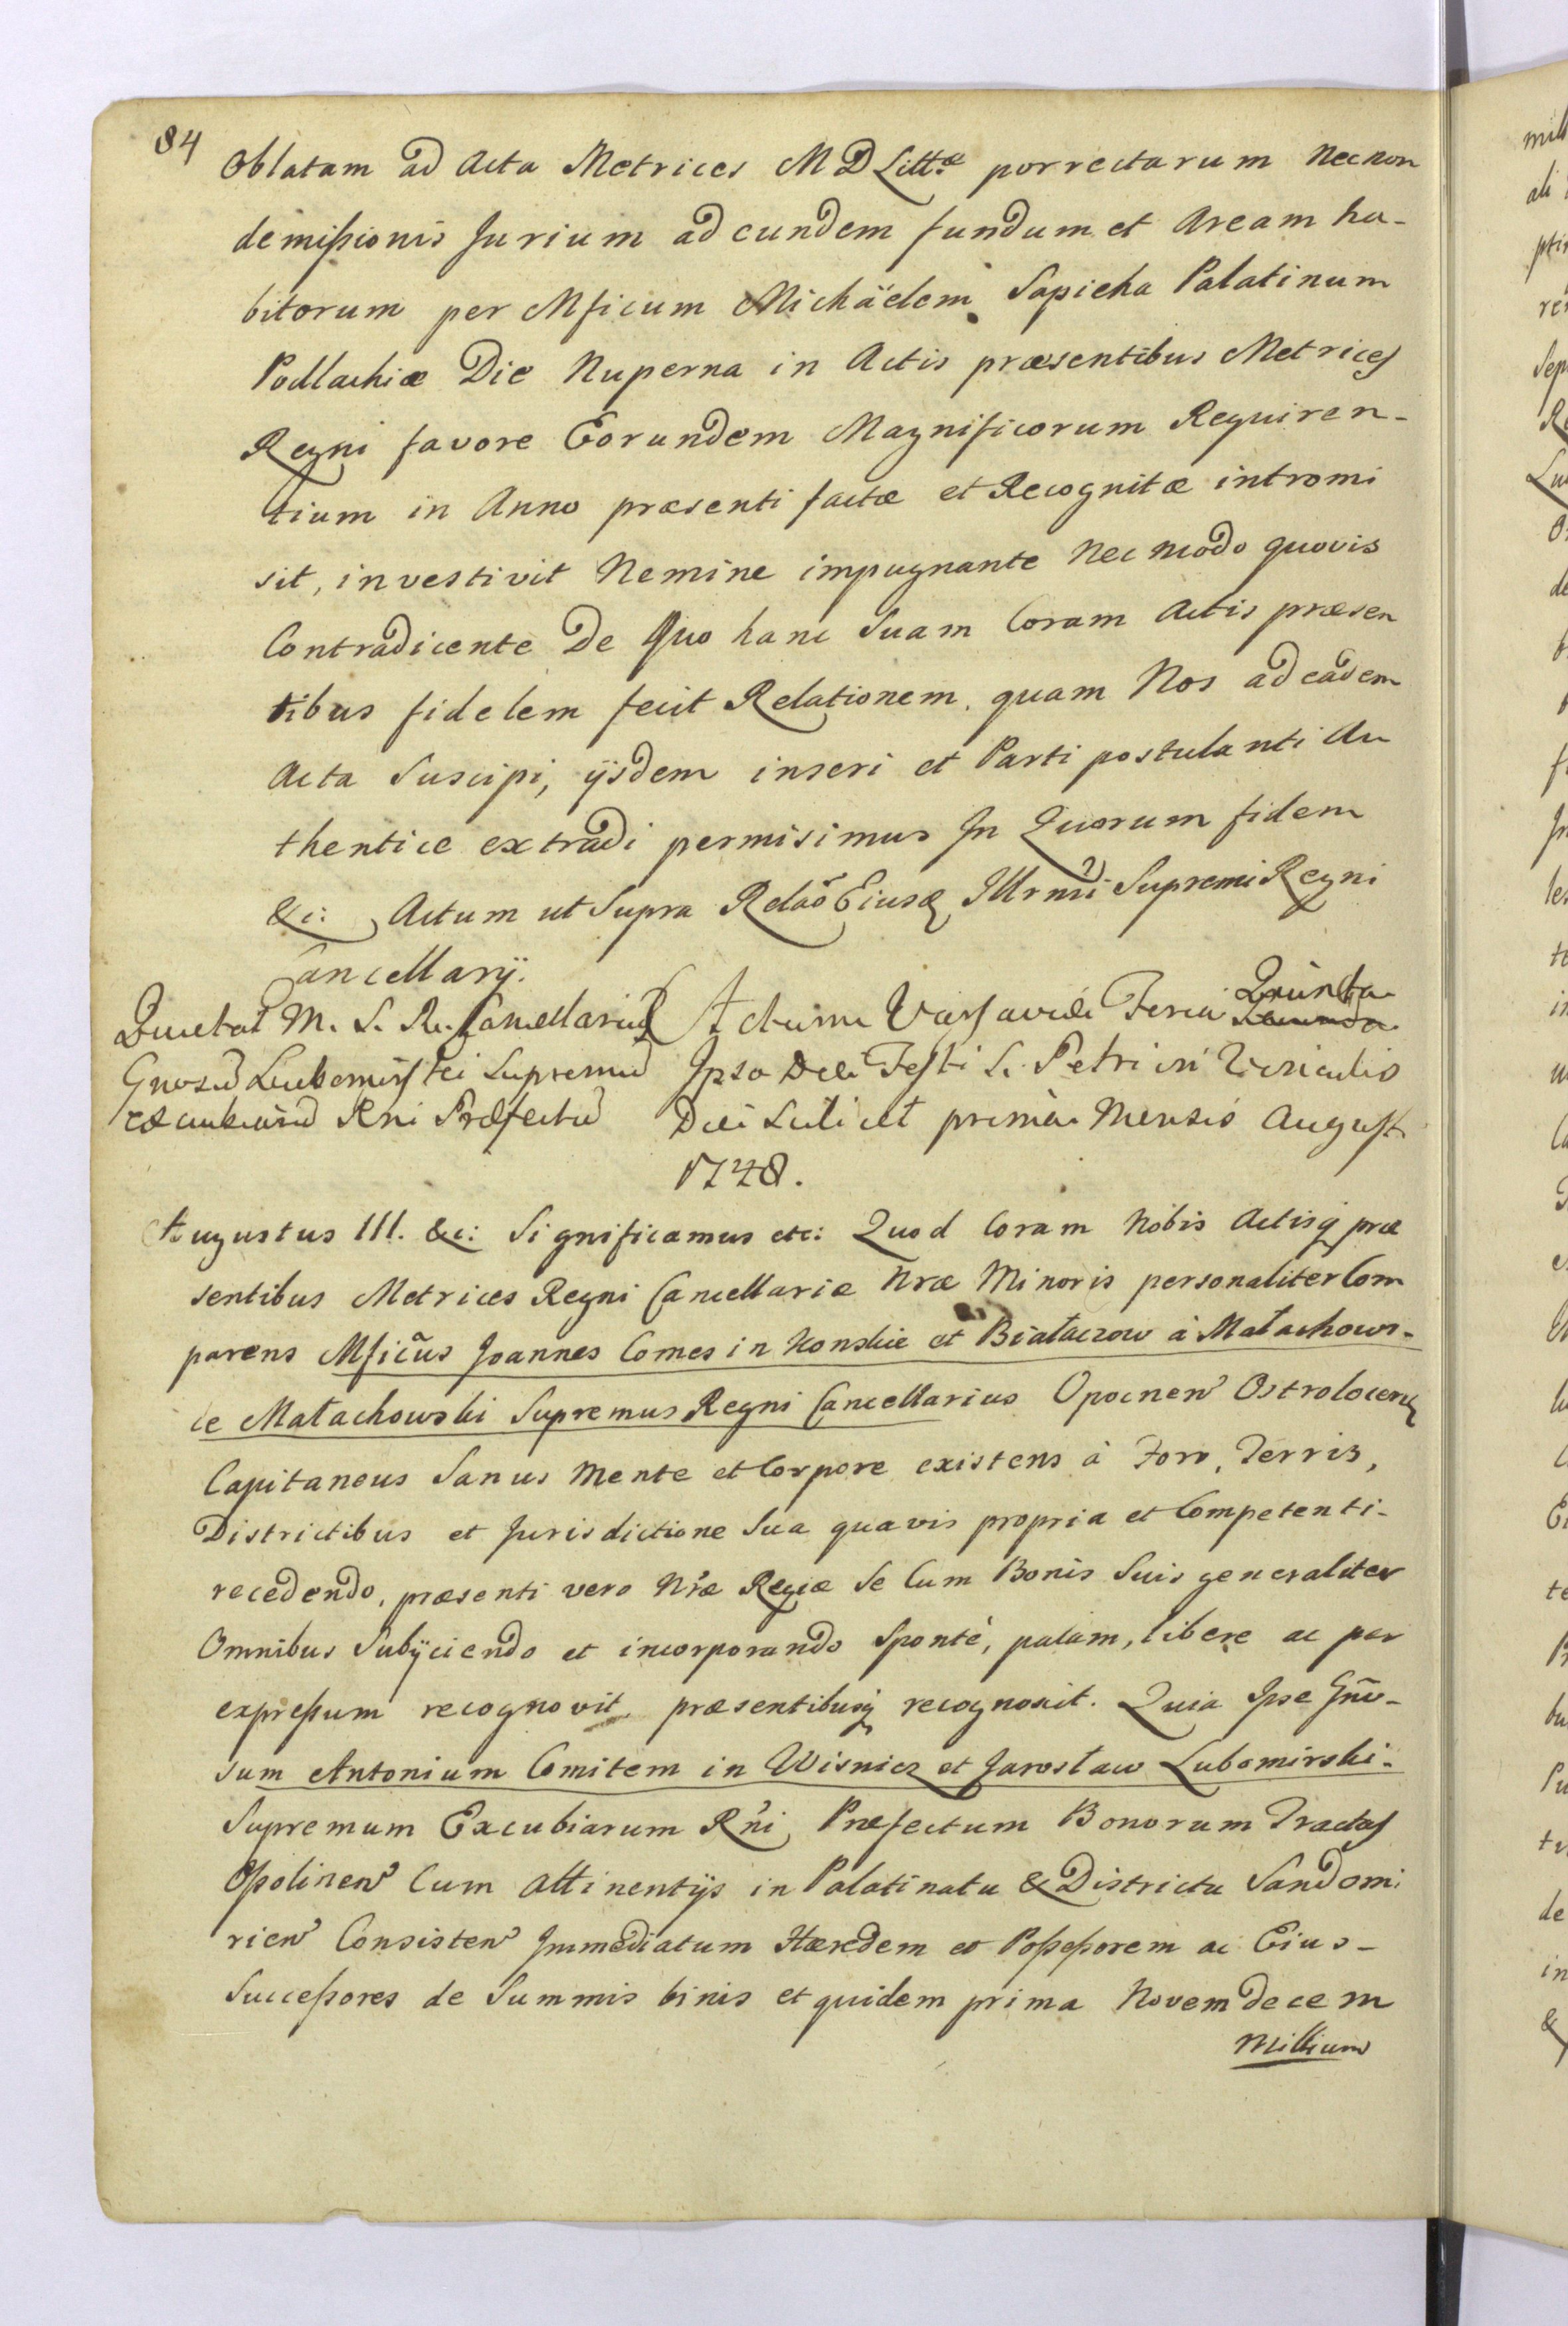 84
Oblatam ad Acta Metrices M D Littæ porrectarum Necnon
demißionis Jurium ad eundem fundum et Aream ha-
bitorum per Mficum Michäelem Sapieha Palatinum
Podlachiæ Die Nuperna in Actis præsentibus Metrices
Regni favore Eorundem Magnificorum Requiren-
tium in Anno præsenti factæ et Recognitæ intromi
sit, investivit Nemine impugnante Nec modo quovis
Contradicente De Quo hanc Suam Coram Actis præsen
tibus fidelem fecit Relationem, quam Nos ad eadem
Acta Suscipi, ijsdem inseri et Parti postulanti Au
thentice extradi permisimus In Quorum fidem
&c: Actum ut Supra Relaõ Eiusd Illrmi Supremi Regni
Cancellarÿ.
Quietat M. S. R. Cancellarius
Gnosum Lubomirski Supremum
excubiarum Rni Præfectum
Actum Varsaviæ Feria Quinta Secunda
Ipso Die Festi S. Petri in Vinculis
Die Scilicet prima Mensis Augusti
1748.
Augustus III. &c: Significamus etc: Quod Coram Nobis Actisq præ
sentibus Metrices Regni Cancellariæ Nræ Minoris personaliter Com
parens Mficus Joannes Comes in Konskie et Białaczow à Małachowi-
ce Małachowski Supremus Regni Cancellarius Opocnen Ostrolocenq
Capitaneus Sanus Mente et Corpore existens à Foro, Terris,
Districtibus et Jurisdictione Sua quavis propria et Competenti-
recedendo, præsenti vero Nræ Regiæ Se Cum Bonis Suis generaliter
Omnibus Subÿciendo et incorporando Sponté, palam, libere ac per
expreßum recognovit, præsentibusq recognoscit. Quia Ipse Gño-
sum Antonium Comitem in Wisnicz et Jarosław Lubomirski-
Supremum Excubiarum Rni Præfectum Bonorum Tractus
Opolinen Cum Attinentÿs in Palatinatu & Districtu Sandomi
rien Consisten Immediatum Hæredem et Poßeßorem ac Eius-
Succeßores de Summis binis et quidem prima Novem decem
Millium